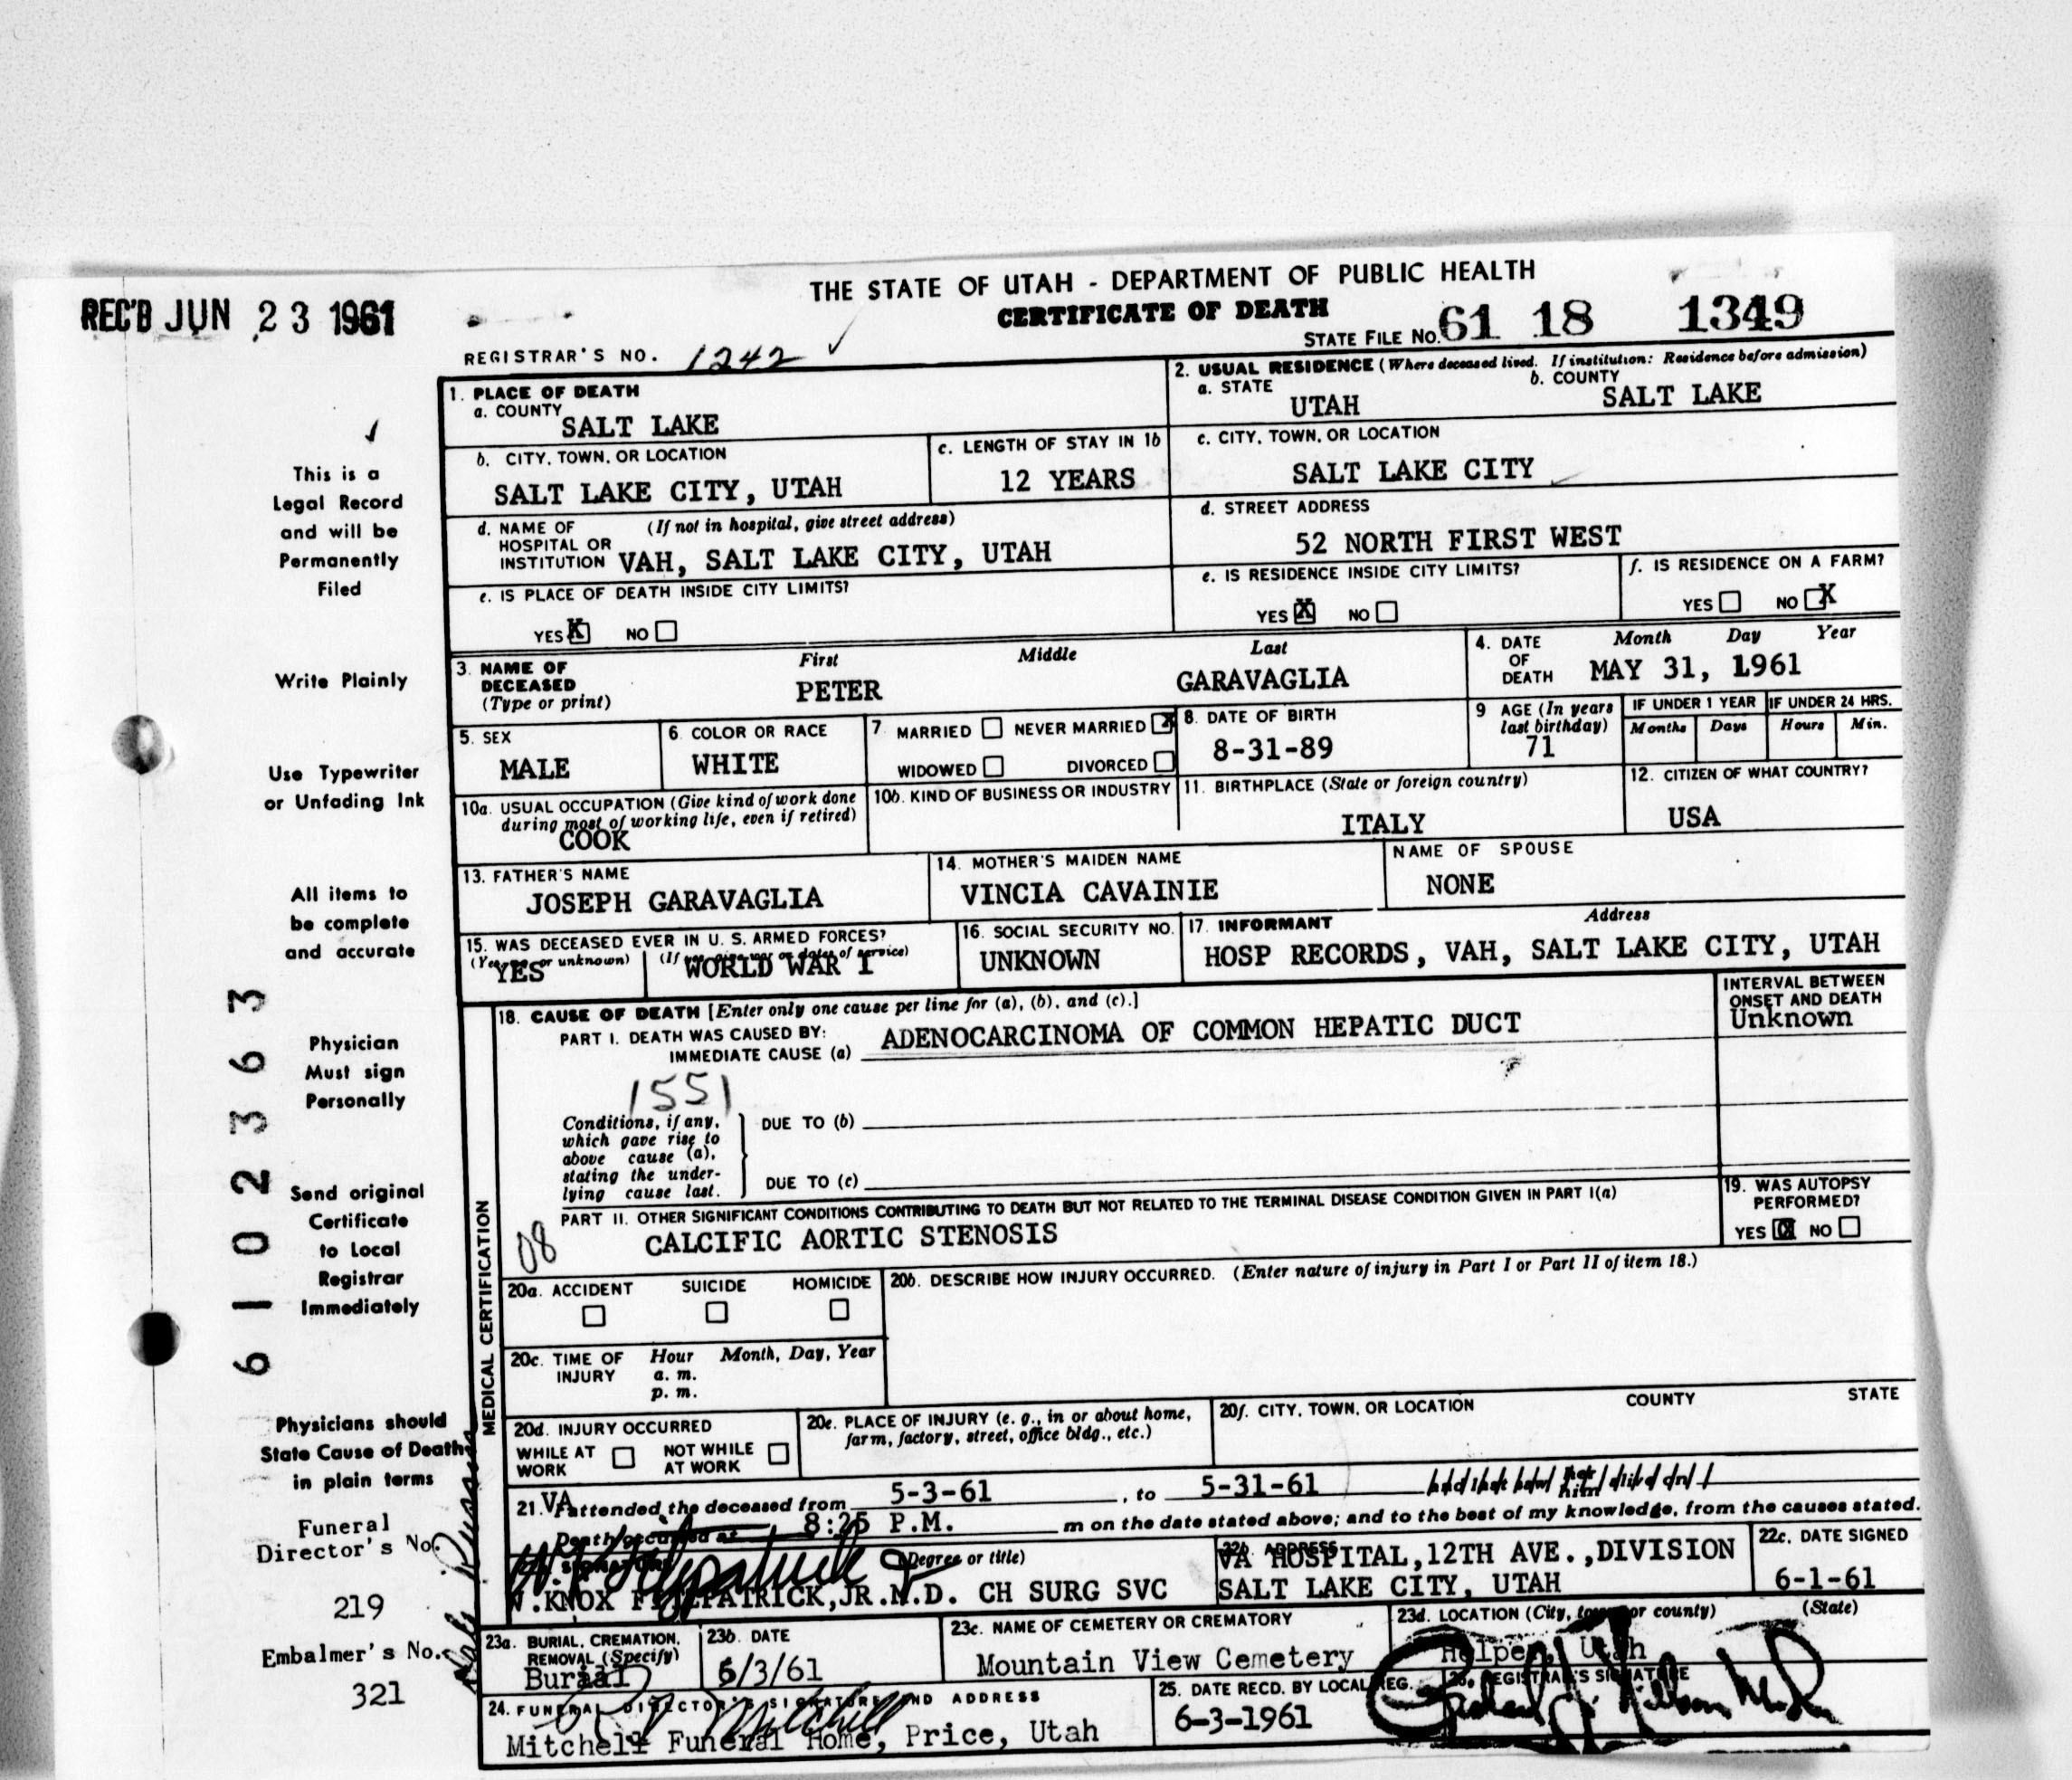 THE STATE OF UTAH - DEPARTMENT OF PUBLIC HEALTH
CERTIFICATE OF DEATH
REC'D JUN 23 1961
STATE FILE NO. 61 18 1349
REGISTRAR'S NO. 1242
1. PLACE OF DEATH
a. COUNTY
SALT LAKE
2. USUAL RESIDENCE (Where deceased lived. If institution: Residence before admission)
a. STATE
UTAH
b. COUNTY
SALT LAKE
b. CITY, TOWN, OR LOCATION
SALT LAKE CITY, UTAH
c. LENGTH OF STAY IN 1b
12 YEARS
c. CITY, TOWN, OR LOCATION
SALT LAKE CITY
d. NAME OF (If not in hospital, give street address)
HOSPITAL OR
INSTITUTION VAH, SALT LAKE CITY, UTAH
d. STREET ADDRESS
52 NORTH FIRST WEST
e. IS PLACE OF DEATH INSIDE CITY LIMITS?
YES X NO
e. IS RESIDENCE INSIDE CITY LIMITS?
YES X NO
f. IS RESIDENCE ON A FARM?
YES NO X
3. NAME OF
DECEASED
(Type or print)
First
PETER
Middle
Last
GARAVAGLIA
4. DATE
OF
DEATH
Month Day Year
MAY 31, 1961
5. SEX
MALE
6. COLOR OR RACE
WHITE
7. MARRIED NEVER MARRIED X
WIDOWED DIVORCED
8. DATE OF BIRTH
8-31-89
9 AGE (In years
last birthday)
71
IF UNDER 1 YEAR
Months Days
IF UNDER 24 HRS.
Hours Min.
10a. USUAL OCCUPATION (Give kind of work done
during most of working life, even if retired)
COOK
10b. KIND OF BUSINESS OR INDUSTRY
11. BIRTHPLACE (State or foreign country)
ITALY
12. CITIZEN OF WHAT COUNTRY?
USA
13. FATHER'S NAME
JOSEPH GARAVAGLIA
14. MOTHER'S MAIDEN NAME
VINCIA CAVAINIE
NAME OF SPOUSE
NONE
15. WAS DECEASED EVER IN U. S. ARMED FORCES?
(Yes, no, or unknown) (If yes, give war or dates of service)
YES WORLD WAR I
16. SOCIAL SECURITY NO.
UNKNOWN
17. INFORMANT Address
HOSP RECORDS, VAH, SALT LAKE CITY, UTAH
MEDICAL CERTIFICATION
18. CAUSE OF DEATH [Enter only one cause per line for (a), (b), and (c).]
PART I. DEATH WAS CAUSED BY:
IMMEDIATE CAUSE (a) ADENOCARCINOMA OF COMMON HEPATIC DUCT
INTERVAL BETWEEN
ONSET AND DEATH
Unknown
1551
Conditions, if any,
which gave rise to
above cause (a),
stating the under-
lying cause last.
DUE TO (b)
DUE TO (c)
PART II. OTHER SIGNIFICANT CONDITIONS CONTRIBUTING TO DEATH BUT NOT RELATED TO THE TERMINAL DISEASE CONDITION GIVEN IN PART I(a)
08
CALCIFIC AORTIC STENOSIS
19. WAS AUTOPSY
PERFORMED?
YES X NO
20a. ACCIDENT SUICIDE HOMICIDE
20b. DESCRIBE HOW INJURY OCCURRED. (Enter nature of injury in Part I or Part II of item 18.)
20c. TIME OF
INJURY
Hour Month, Day, Year
a. m.
p. m.
20d. INJURY OCCURRED
WHILE AT
WORK
NOT WHILE
AT WORK
20e. PLACE OF INJURY (e. g., in or about home,
farm, factory, street, office bldg., etc.)
20f. CITY, TOWN, OR LOCATION COUNTY STATE
21. VA attended the deceased from 5-3-61, to 5-31-61
Death occurred at 8:25 P.M. m on the date stated above; and to the best of my knowledge, from the causes stated.
(Degree or title)
W.KNOX FITZPATRICK,JR.M.D. CH SURG SVC
22b. ADDRESS
VA HOSPITAL,12TH AVE.,DIVISION
SALT LAKE CITY, UTAH
22c. DATE SIGNED
6-1-61
23a. BURIAL, CREMATION,
REMOVAL (Specify)
Burial
23b. DATE
6/3/61
23c. NAME OF CEMETERY OR CREMATORY
Mountain View Cemetery
23d. LOCATION (City, town, or county) (State)
Helper, Utah
24. FUNERAL DIRECTOR'S SIGNATURE AND ADDRESS
Mitchell Funeral Home, Price, Utah
25. DATE RECD. BY LOCAL REG.
6-3-1961
26. REGISTRAR'S SIGNATURE
This is a
Legal Record
and will be
Permanently
Filed
Write Plainly
Use Typewriter
or Unfading Ink
All items to
be complete
and accurate
Physician
Must sign
Personally
Send original
Certificate
to Local
Registrar
Immediately
Physicians should
State Cause of Death
in plain terms
Funeral
Director's No.
219
Embalmer's No.
321
6102363